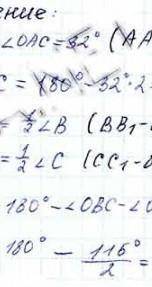 ение:
∠OAC = 32° (АА
C = 180° - 32°·2 =
= ½ ∠B (BB₁ -
= ½ ∠C (CC₁ -
180° - ∠OBC - ∠O
180° - 116°/2 =